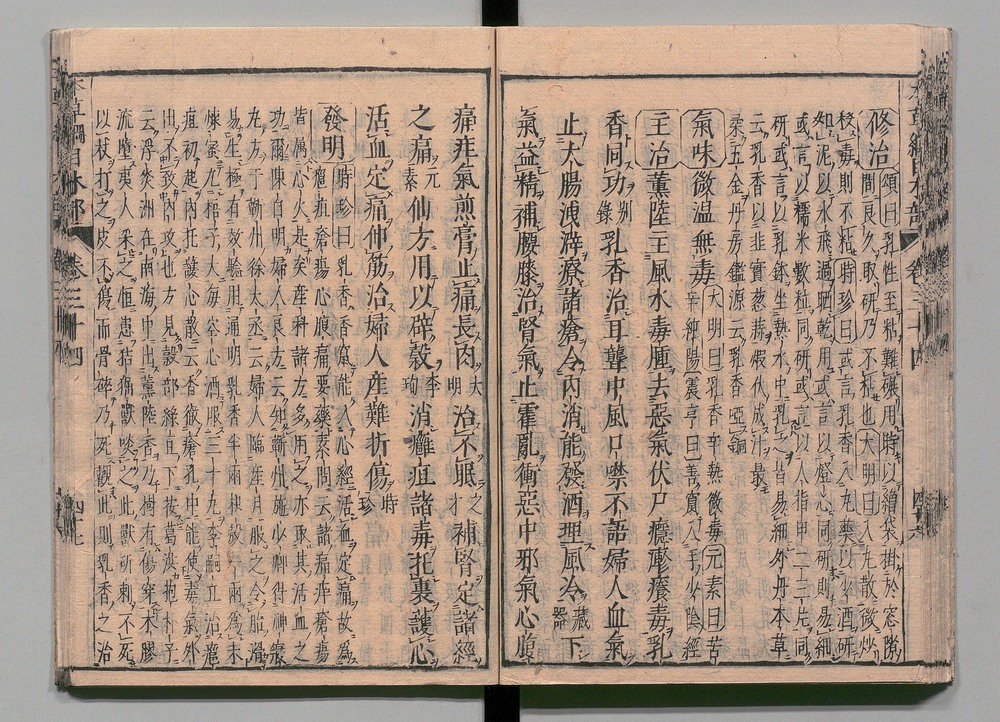 修治 頌曰乳性至粘難碾用時以繒袋掛於窓隙
間良久取研乃不粘也大明曰入丸散微炒
殺毒則不粘時珍曰或言乳香入丸藥以少酒研
如泥以水飛過晒乾用或言以燈心同研則易細
或言以糯米數粒同研或言以人指甲二三片同
研或言以乳鉢坐熱水中乳之皆易細外丹本草
云乳香以韭實葱蒜煆伏成汁最
柔五金丹房鑑源云乳香啞銅
氣味 微温無毒 大明曰乳香辛熱微毒元素曰苦
辛純陽震亨曰善竄入手少陰經
主治 薫陸主風水毒腫去惡氣伏尸癮𤺋癢毒乳
香同功 別錄 乳香治耳聾中風口噤不語婦人血氣
止大腸洩澼療諸瘡令内消能發酒理風冷 藏器 下
氣益精補腰膝治腎氣止霍亂衝惡中邪氣心腹
痛疰氣煎膏止痛長肉 大明 治不眠 之才 補腎定諸經
之痛 元素 仙方用以辟穀 李珣 消癰疽諸毒托裏護心
活血定痛伸筋治婦人産難折傷 時珍
發明 時珍曰乳香香竄能入心經活血定痛故爲
癰疽瘡瘍心腹痛要藥素問云諸痛痒瘡瘍
皆屬心火是矣産科諸方多用之亦取其活血之
功爾陳自明婦人良方云知蘄州施少卿得神寢
丸方于蘄州徐太丞云婦人臨産月服之令胎滑
易生極有效驗用通明乳香半兩枳殻一兩爲末
煉蜜丸梧子大毎空心酒服三十丸李嗣立治癰
疽初起内托護心散云香徹瘡孔中能使毒氣外
出不致内攻也方見穀部綠豆下按葛洪抱朴子
云浮炎洲在南海中出薫陸香乃樹有傷穿木膠
流墮夷人采之恒患狤𤟎獸啖之此獸斫刺不死
以杖打之皮不傷而骨碎乃死觀此則乳香之治
本草綱目木部 卷三十四 四十七